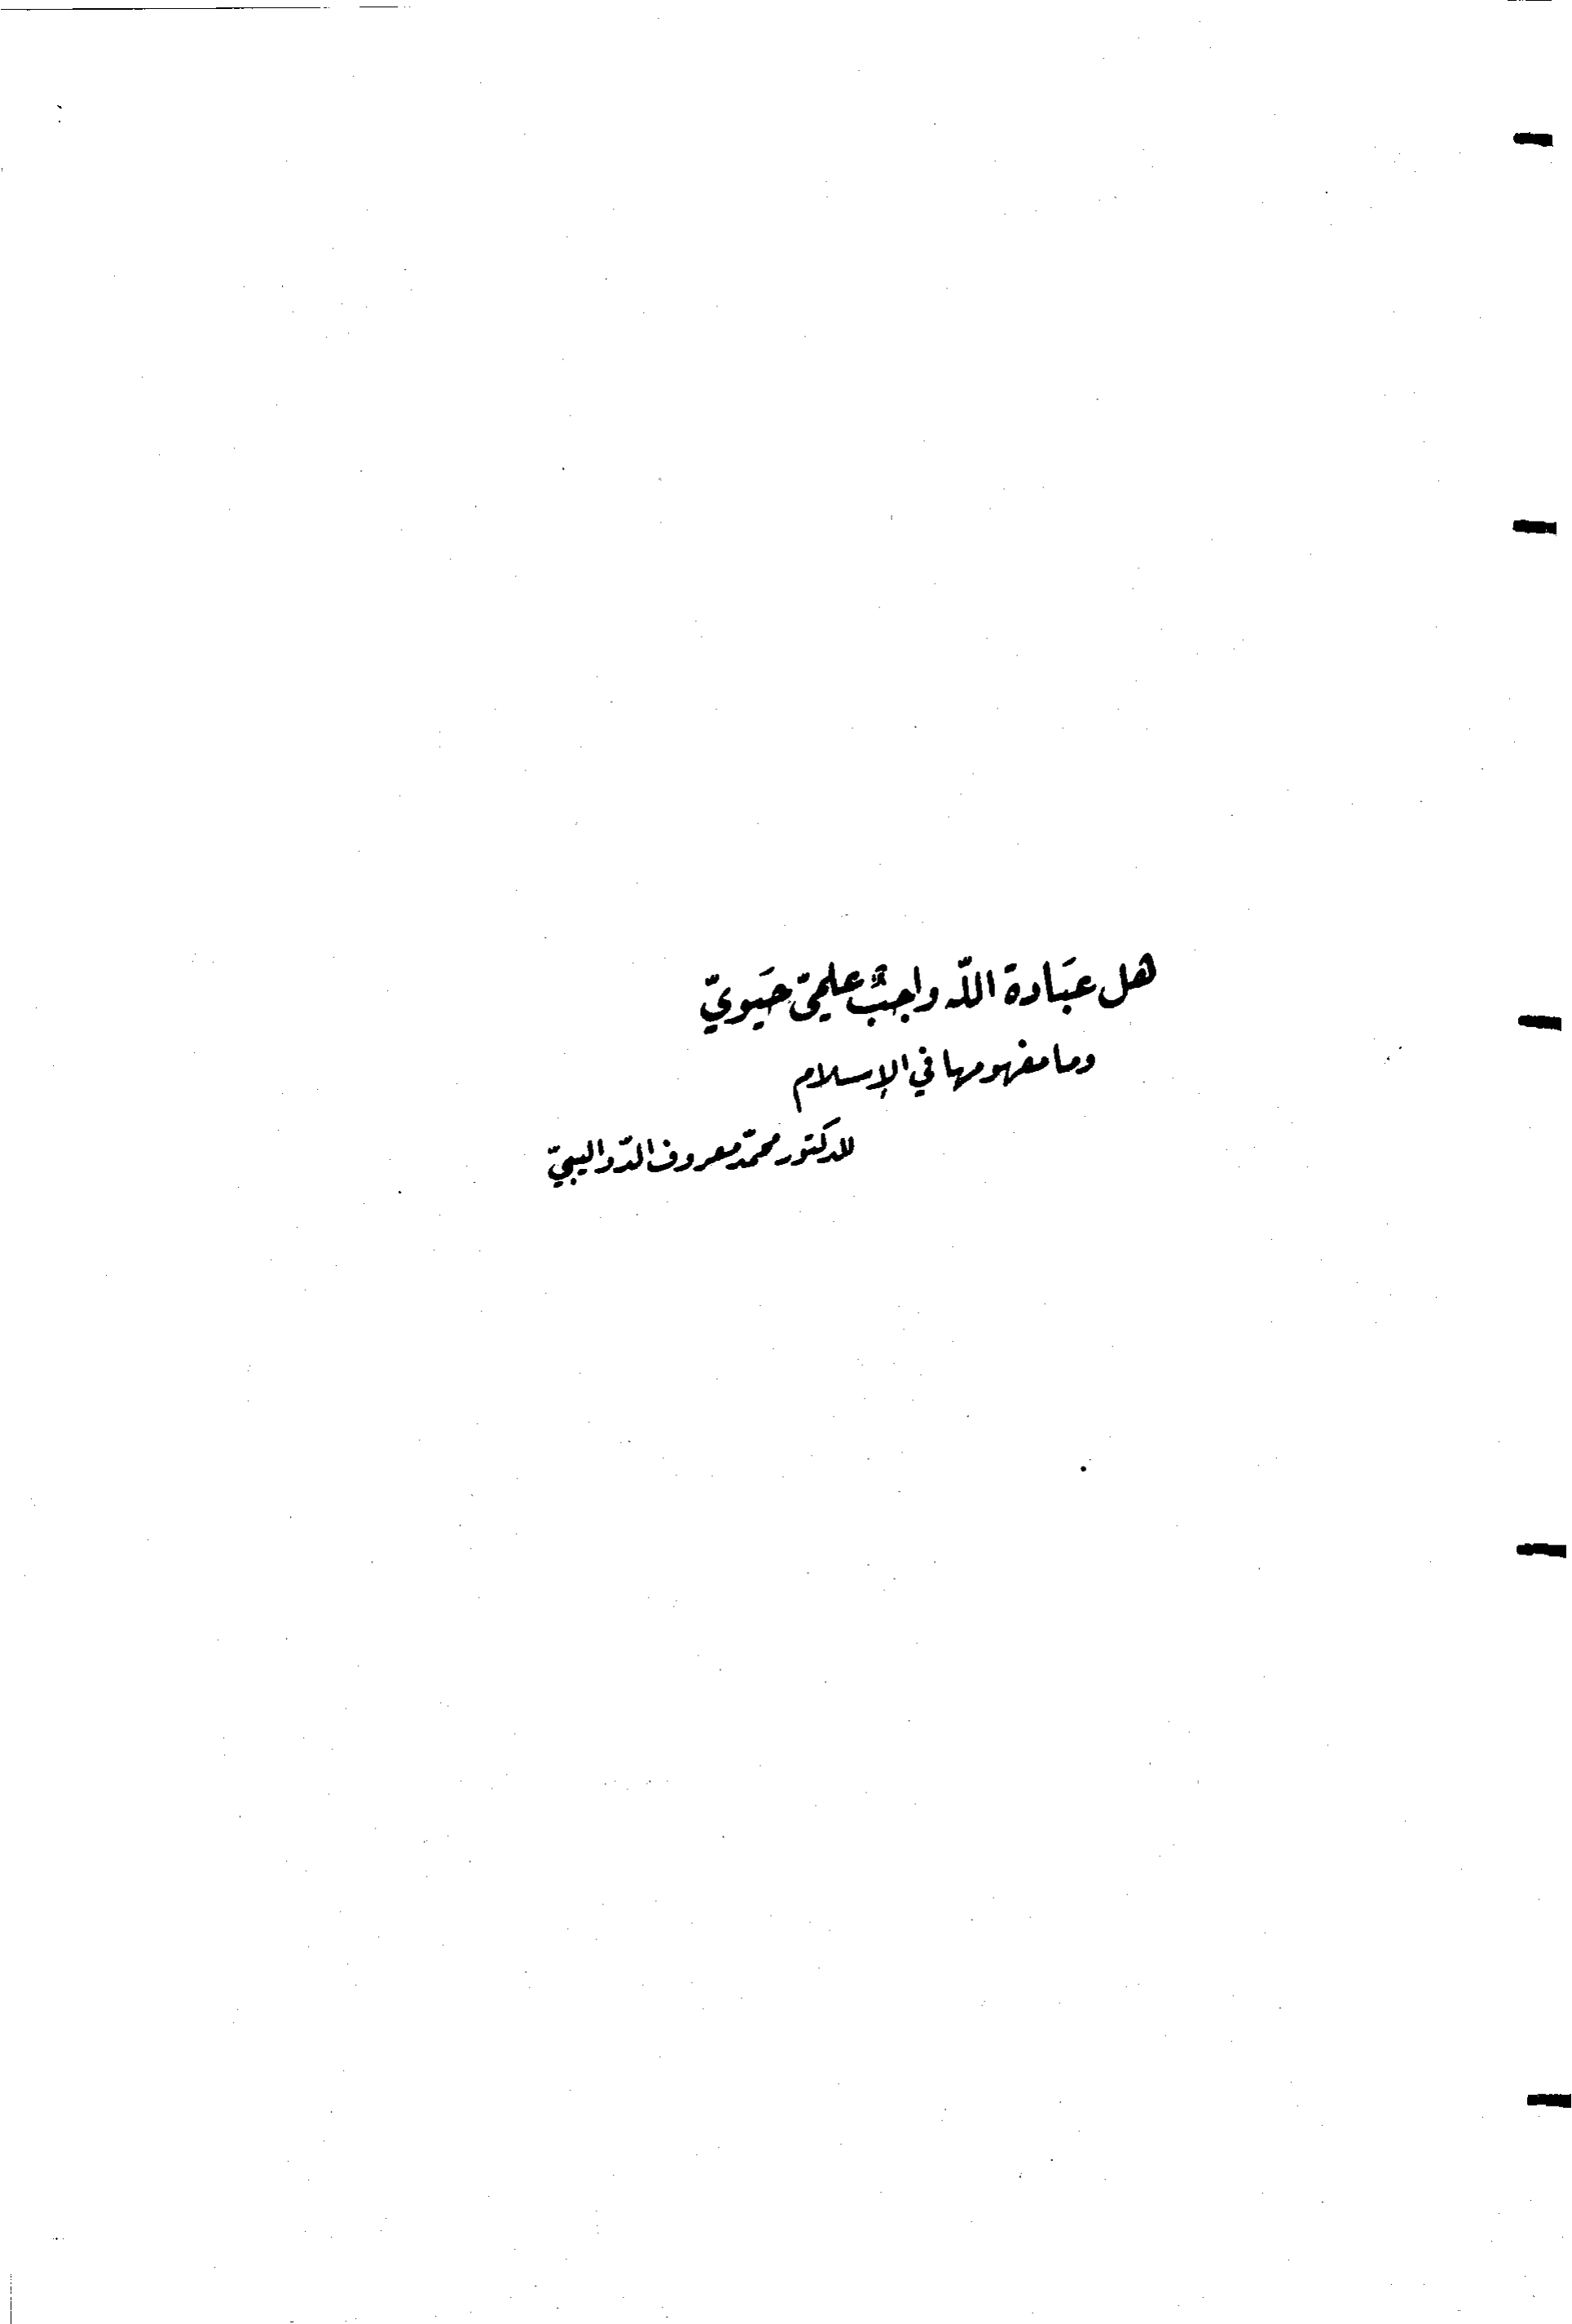 هل عبَادة اللّه واجبٌ علميّ حَيَويّ
وما مفهومها في الإسلام
للدكتور محمّد معروف الدّواليبيّ